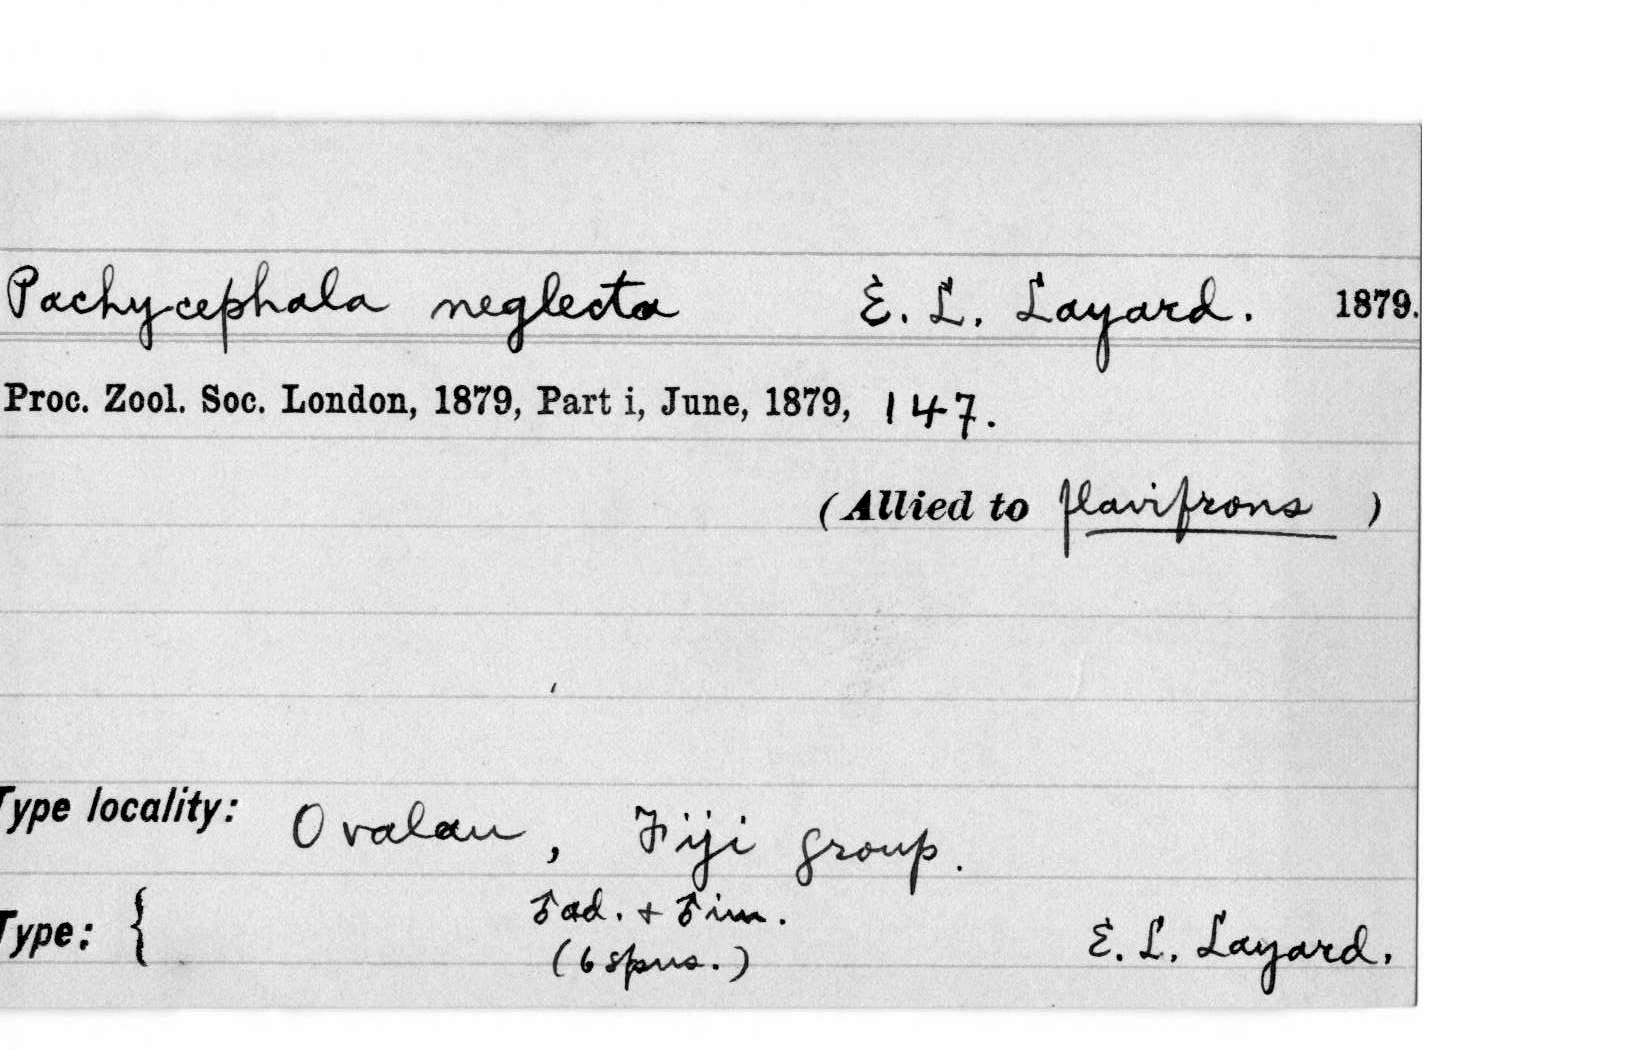 Pachycephala neglecta E. L. Layard. 1879.
Proc. Zool. Soc. London, 1879, Part i, June, 1879, 147.
(Allied to flavifrons )
Type locality: Ovalau, Fiji group.
♂ ad. + ♂ im.
Type: { E. L. Layard.
(6 spns.)